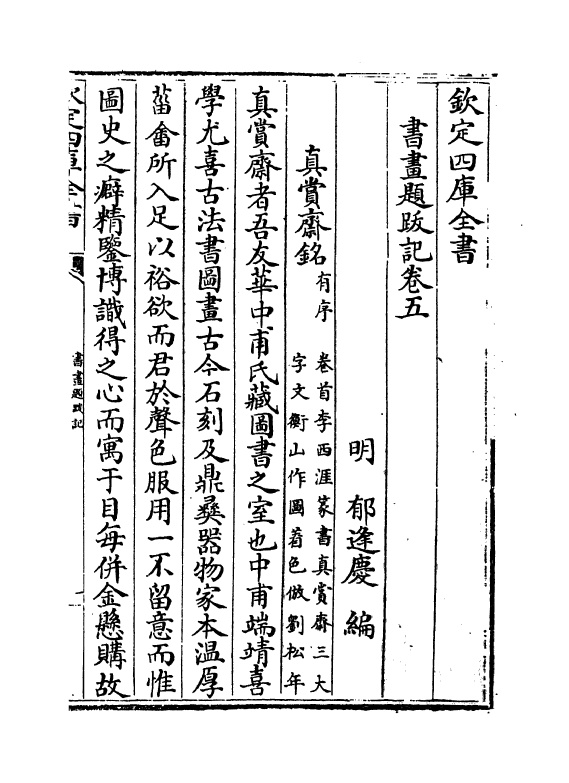 欽定四庫全書
書畫題跋記卷五
明 郁逢慶 編
真賞齋銘有序 卷首李西涯篆書真賞齋三大
字文衡山作圖着色倣劉松年
真賞齋者吾友華中甫氏藏圖書之室也中甫端靖喜
學尤喜古法書圖畫古今石刻及鼎彝器物家本温厚
菑畬所入足以裕欲而君於聲色服用一不留意而惟
圖史之癖精鑒博識得之心而寓于目每併金懸購故
欽定四庫全書
書畫題跋記